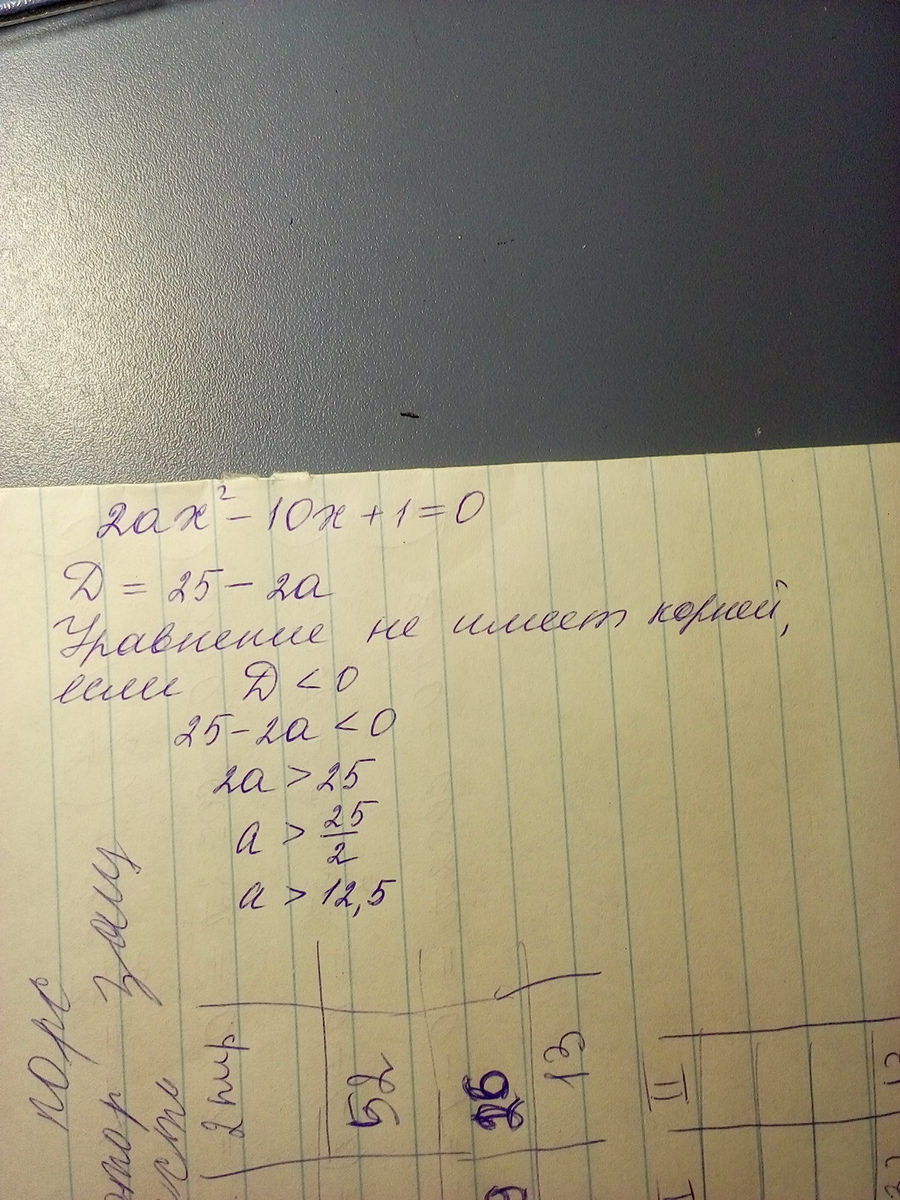 2ax² - 10x + 1 = 0
D = 25 - 2a
Уравнение не имеет корней,
если D < 0
25 - 2a < 0
2a > 25
a > 25/2
a > 12,5
порс
2 тир
52
26
13
II